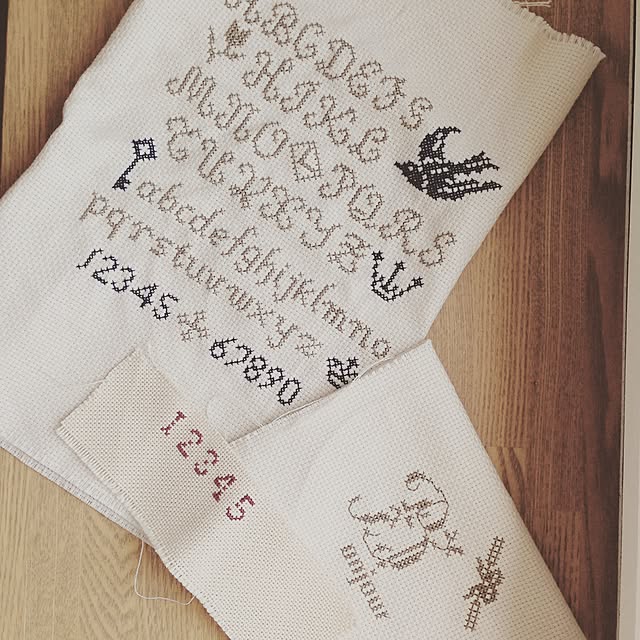 ABCDEFG
HIJKL
MNOPQRS
TUVXYZ
abcdefghijklmno
pqrstuvwxyz
12345 67890
12345